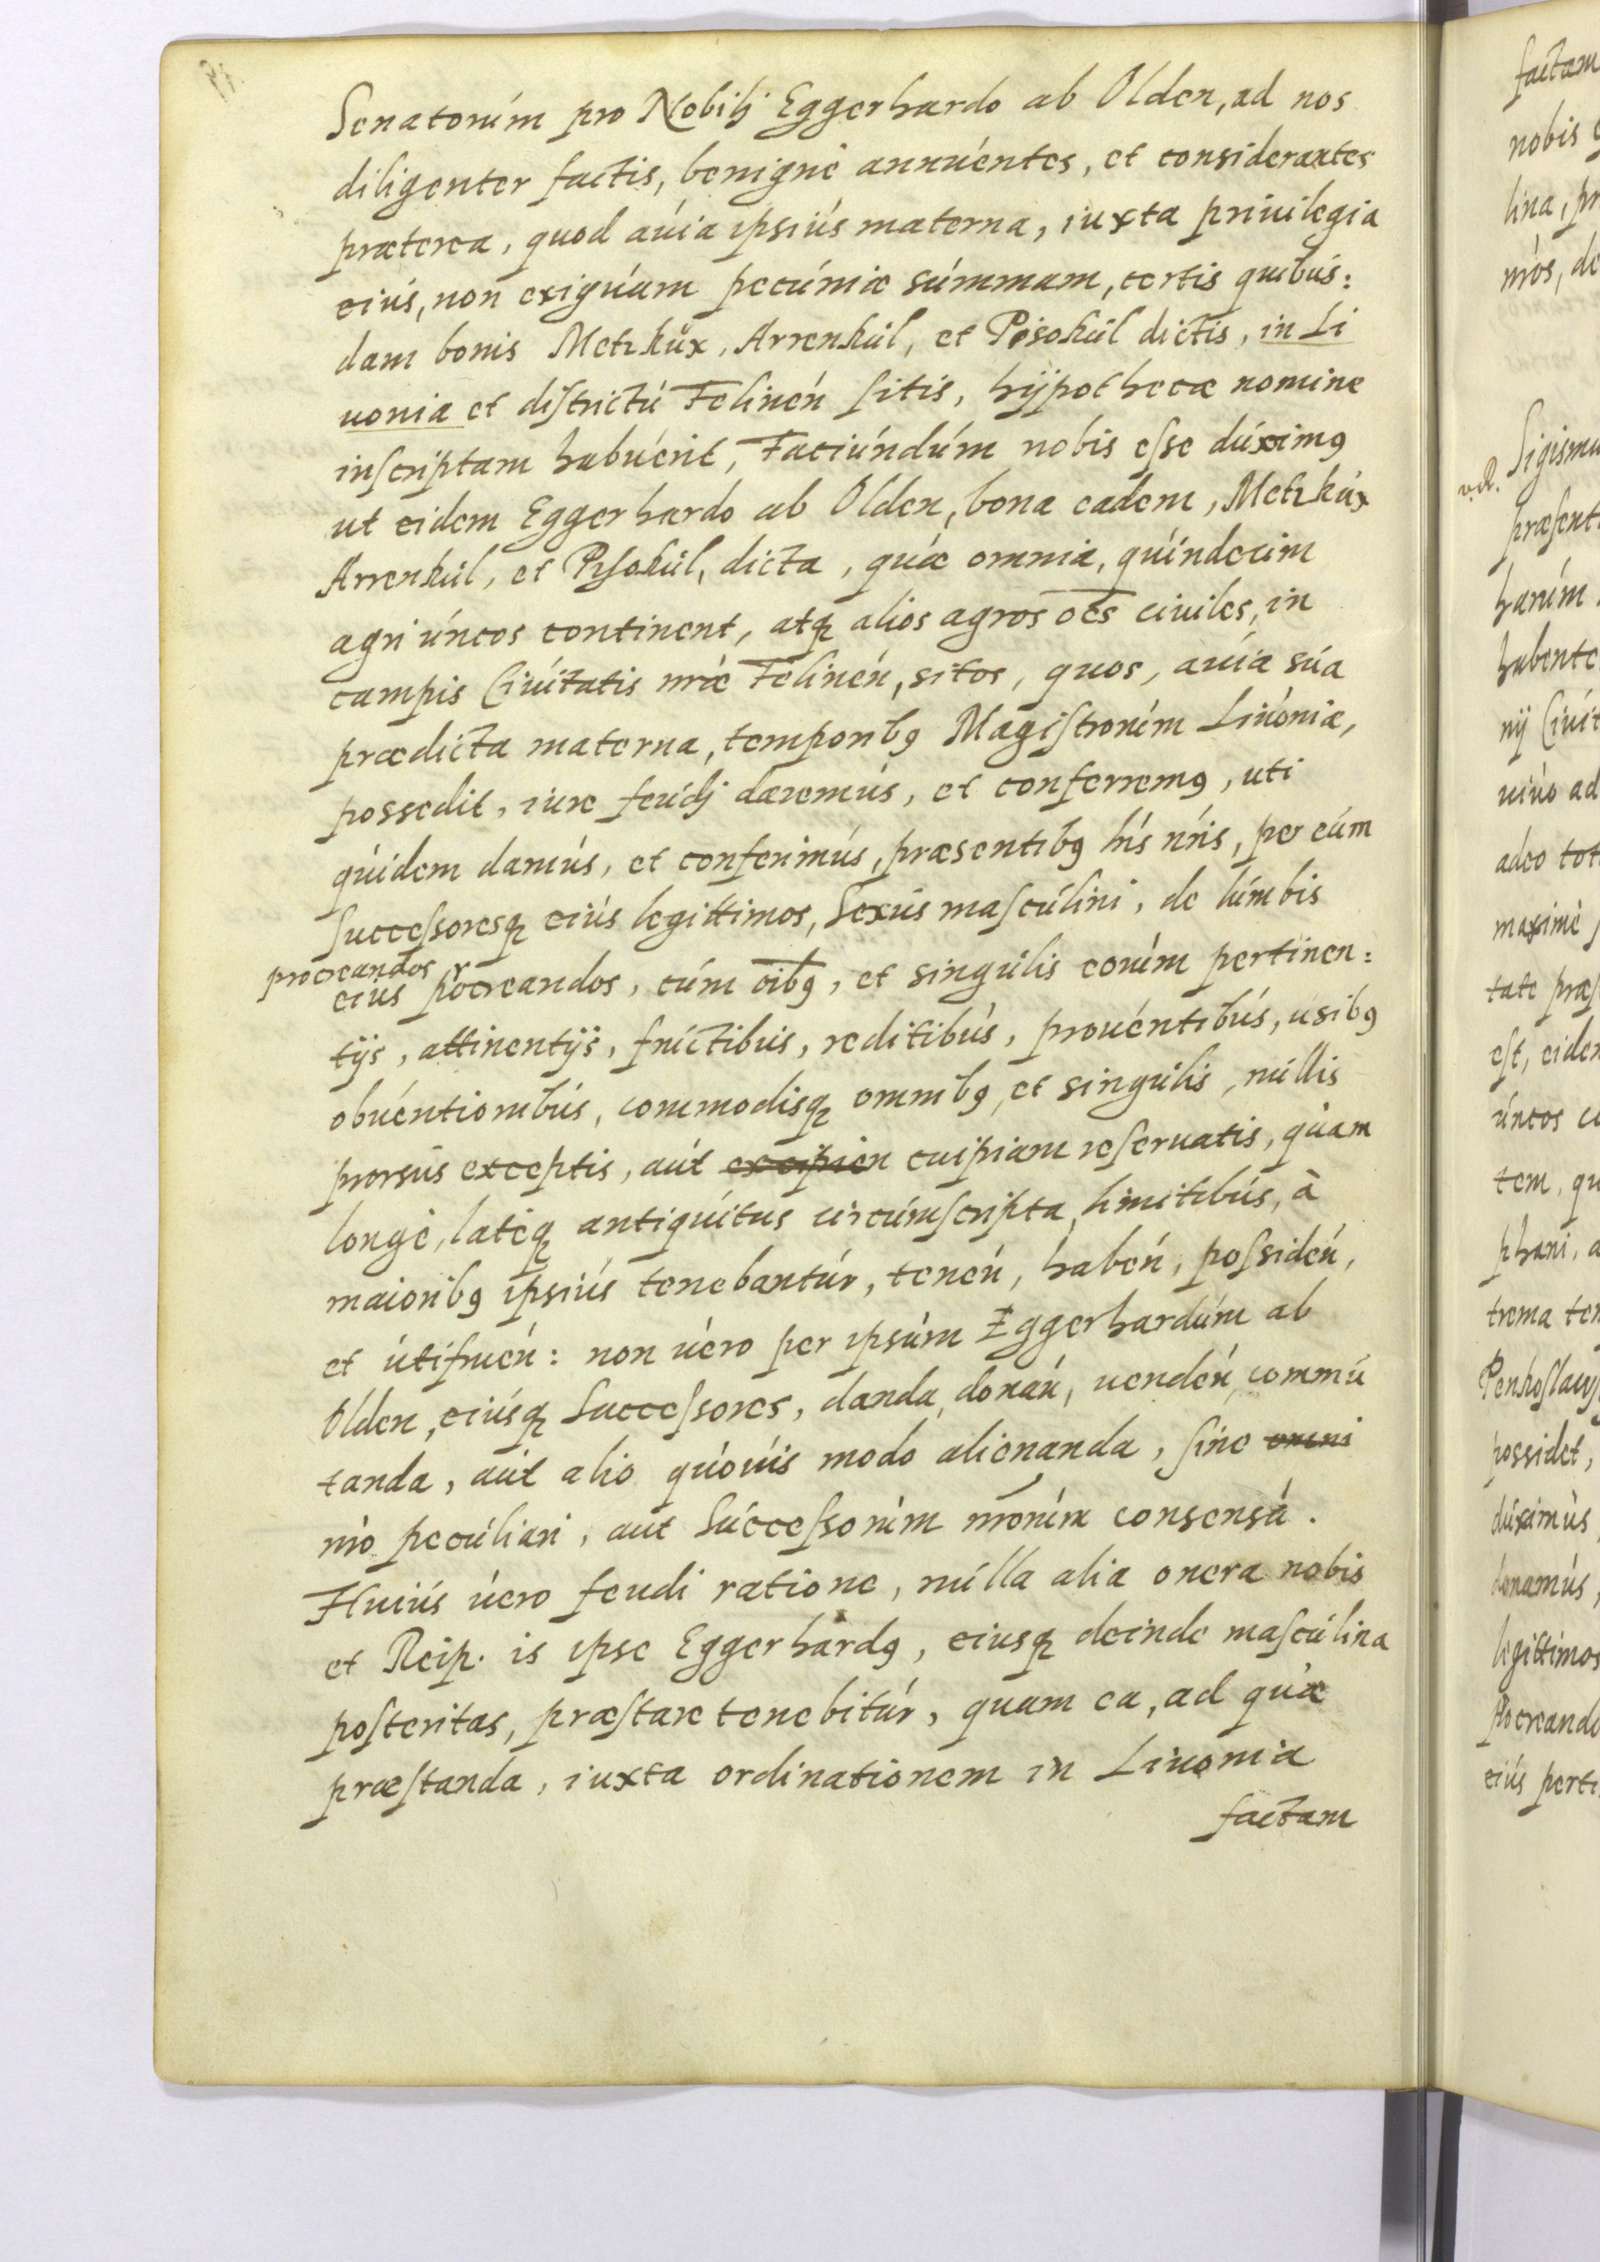 Senatorúm pro Nobilj Eggerhardo ab Olden, ad nos
diligenter factis, benignè annúentes, et considerantes
præterea, quod aúia ipsiús materna, iuxta priuilegia
eiús, non exigúam pecúniæ súmmam, certis quibús:
dam bonis Metzkúx, Arrenkúl, et Pisokúl dictis, in Li
uonia et districtú Felinen̄ sitis, hÿpothecæ nomine
inscriptam habúerit, Faciúndúm nobis esse dúximꝰ
ut eidem Eggerhardo ab Olden, bona eadem, Metzkúx
Arrenkúl, et Pisokúl, dicta, qúæ omnia, qúindecim
agri úncos continent, atqꝫ alios agros oēs ciuiles, in
campis Ciúitatis nr̄æ Felinen̄, sitos, quos, auia súa
prædicta materna, temporibꝰ Magistrorúm Liúoniæ,
possedit, iure feúdj daremús, et conferremꝰ, uti
qúidem damús, et conferimús, præsentibꝰ hís nr̄is, per eúm
Successoresqꝫ eiús legittimos, Sexús mascúlini, de lúmbis
procreandos
eiús procreandos, cúm oībꝰ, et singúlis eorúm pertinen:
tijs, attinentijs, frúctibús, reditibús, prouéntibús, úsibꝰ
obúentionibús, commodisqꝫ omnibꝰ, et singúlis, núllis
prorsús exceptis, aút excipien cuipiam reseruatis, qúam
longè, latèqꝫ antiqúitus circúmscripta, limitibús, à
maioribꝰ ipsiús tenebantúr, tenen̄, haben̄, possiden̄,
et útifruen̄: non úero per ipsúm Eggerhardúm ab
Olden, eiúsqꝫ Successores, danda, donan̄, uenden̄, commú
tanda, aút alio qúoúis modo alienanda, sine omni
nr̄o peculiari, aut Súccessorúm nr̄orúm consensú.
Huiús úero feudi ratione, núlla alia onera nobis
et Reip. is ipse Eggerhardꝰ, eiusqꝫ deinde mascúlina
posteritas, præstare tenebitúr, quam ea, ad qúæ
præstanda, iuxta ordinationem in Liuonia
factam
factam
nobis
lina, pr
v. R.
Sigismu
præsent
harúm
habente
nij Ciúit
uiúo ad
adeo tot
maximè
tate præs
est, eiden
úncos co
tem, qu
phani, a
trema ten
possidet,
dúximús
donamús,
legittimos
procreando
eiús perti